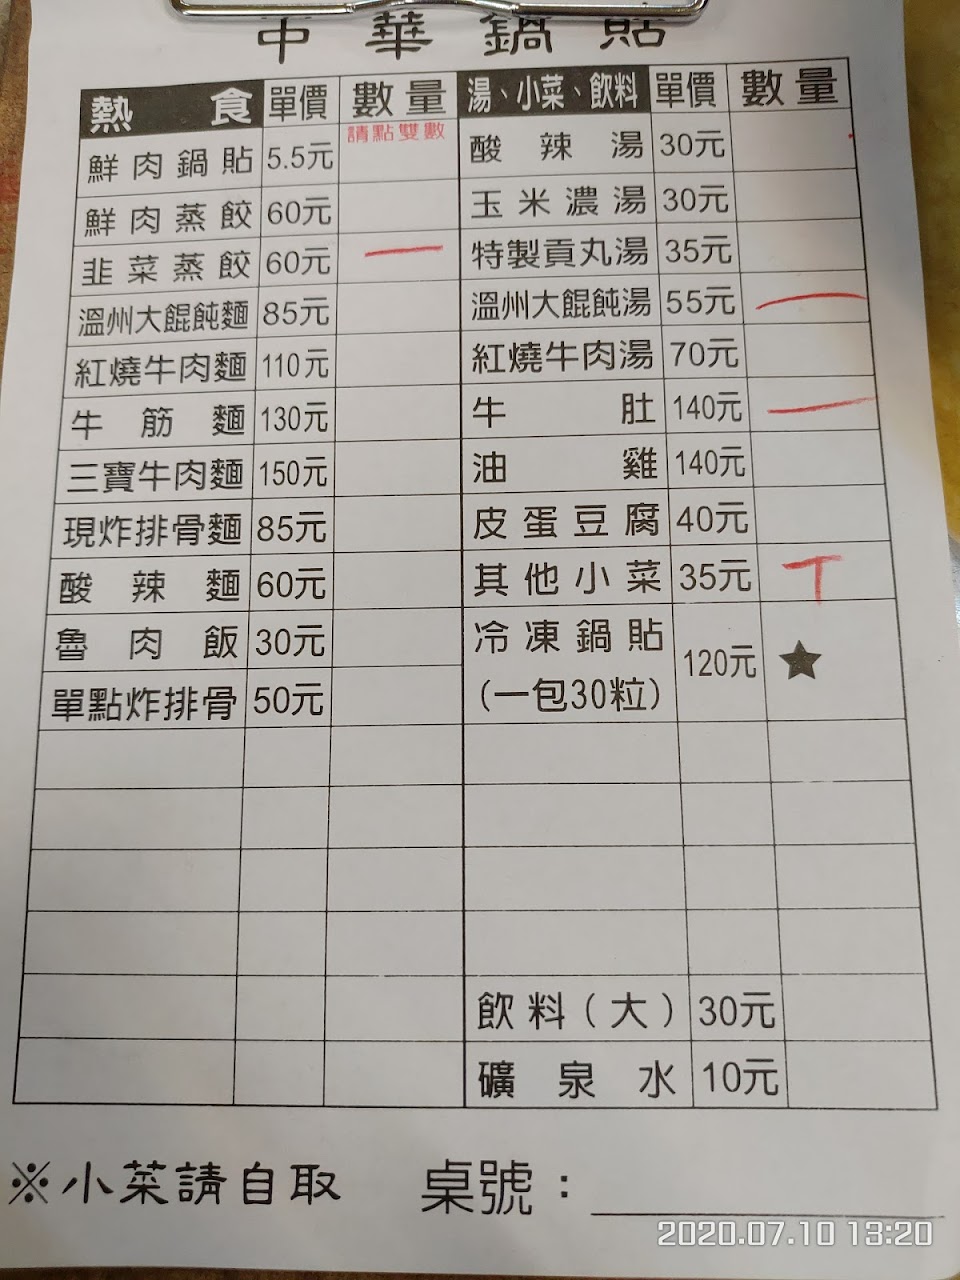 中華鍋貼
熱食 單價 數量 湯、小菜、飲料 單價 數量
請點雙數
鮮肉鍋貼 5.5元 酸辣湯 30元
鮮肉蒸餃 60元 玉米濃湯 30元
韭菜蒸餃 60元 一 特製貢丸湯 35元
溫州大餛飩麵 85元 溫州大餛飩湯 55元 一
紅燒牛肉麵 110元 紅燒牛肉湯 70元
牛筋麵 130元 牛肚 140元 一
三寶牛肉麵 150元 油雞 140元
現炸排骨麵 85元 皮蛋豆腐 40元
酸辣麵 60元 其他小菜 35元 T
魯肉飯 30元 冷凍鍋貼 120元 ★
單點炸排骨 50元 (一包30粒)
飲料(大) 30元
礦泉水 10元
※小菜請自取 桌號：
2020.07.10 13:20